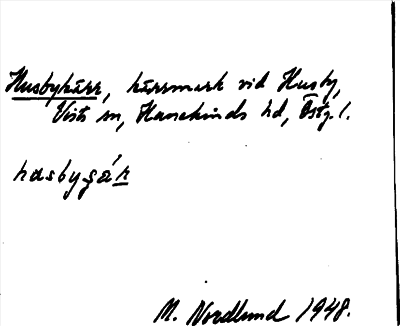 Husbykärr, kärrmark vid Husby,
Vists sn, Hanekinds hd, Östg. l.
M. Nordlund 1948.